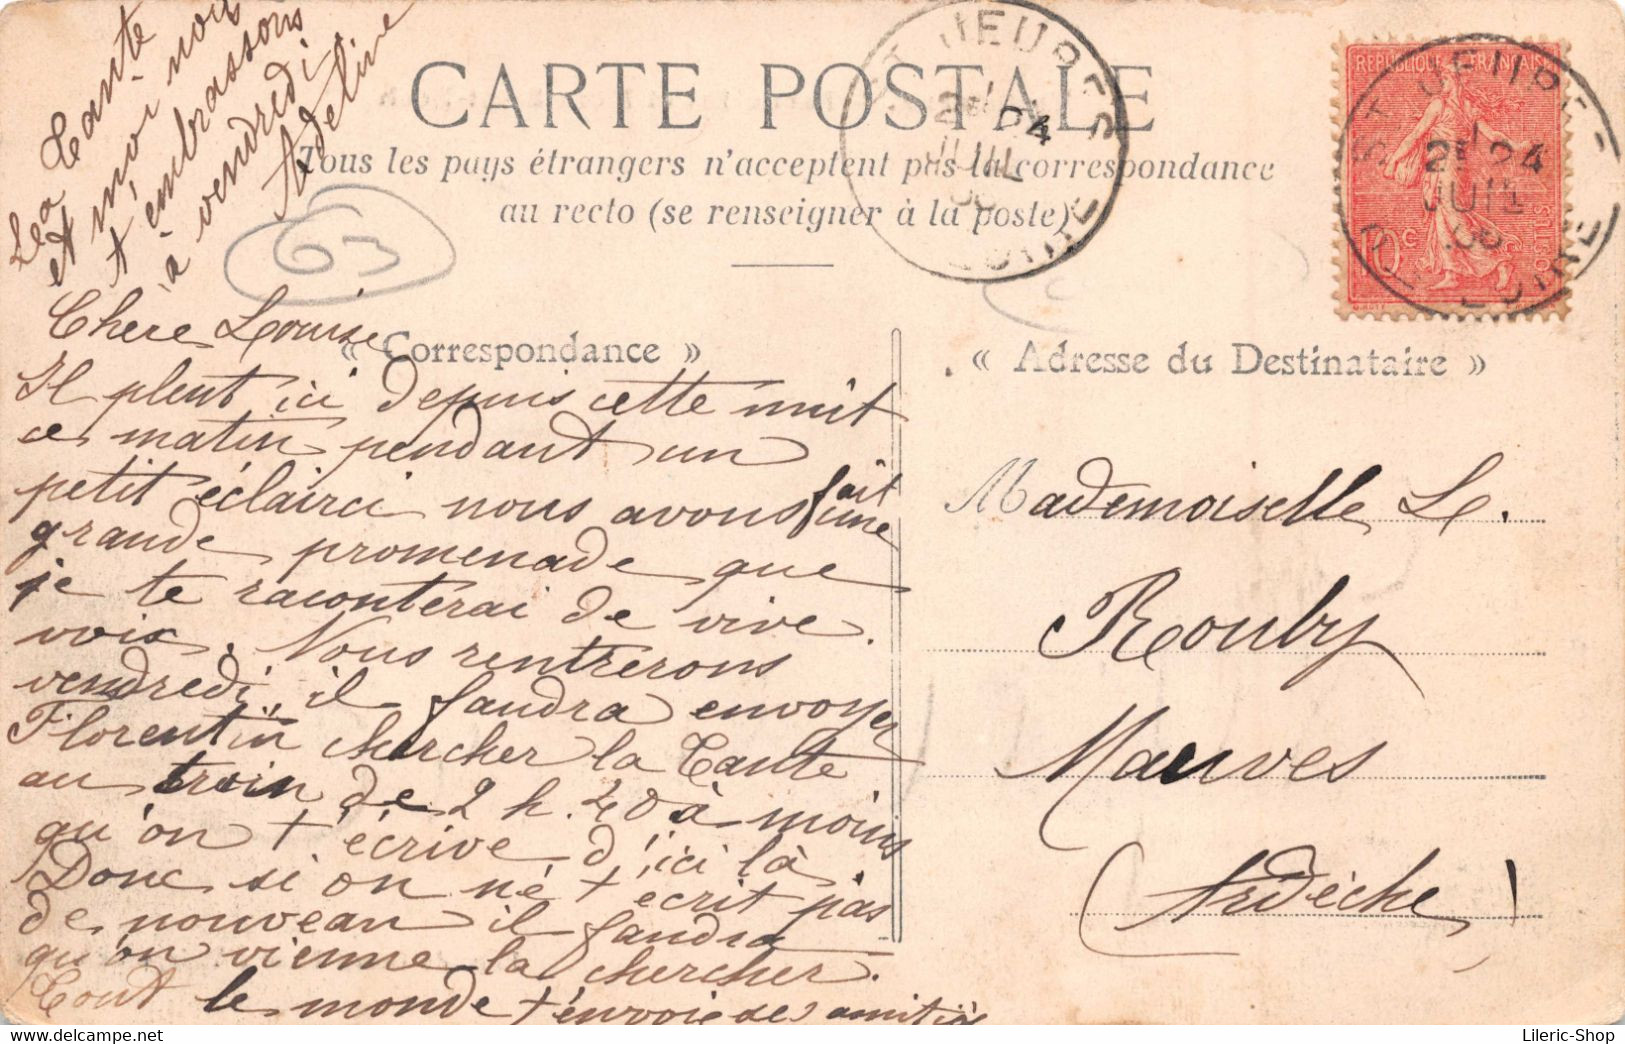 La Tante
et moi nous
t'embrassons
à vendredi
Adeline
CARTE POSTALE
Tous les pays étrangers n'acceptent pas la correspondance
au recto (se renseigner à la poste)
63
ST JEURES
2E 24
JUIL
HTE LOIRE
REPUBLIQUE FRANÇAISE
10c
POSTES
ST JEURES
2E 24
JUIL
HTE LOIRE
« Correspondance »
Chère Louise
Il pleut ici depuis cette nuit
ce matin pendant un
petit éclairci nous avons fait une
grande promenade que
je te raconterai de vive
voix. Nous rentrerons
vendredi, il faudra envoyer
Florentin chercher la Tante
au train de 2 h. 40 à moins
qu'on t'écrive d'ici là
Donc si on né t'écrit pas
de nouveau il faudra
qu'on vienne la chercher.
Tout le monde t'envoie des amitiés
« Adresse du Destinataire »
Mademoiselle L.
Rouby
Mauves
(Ardèche)
Lileric-Shop